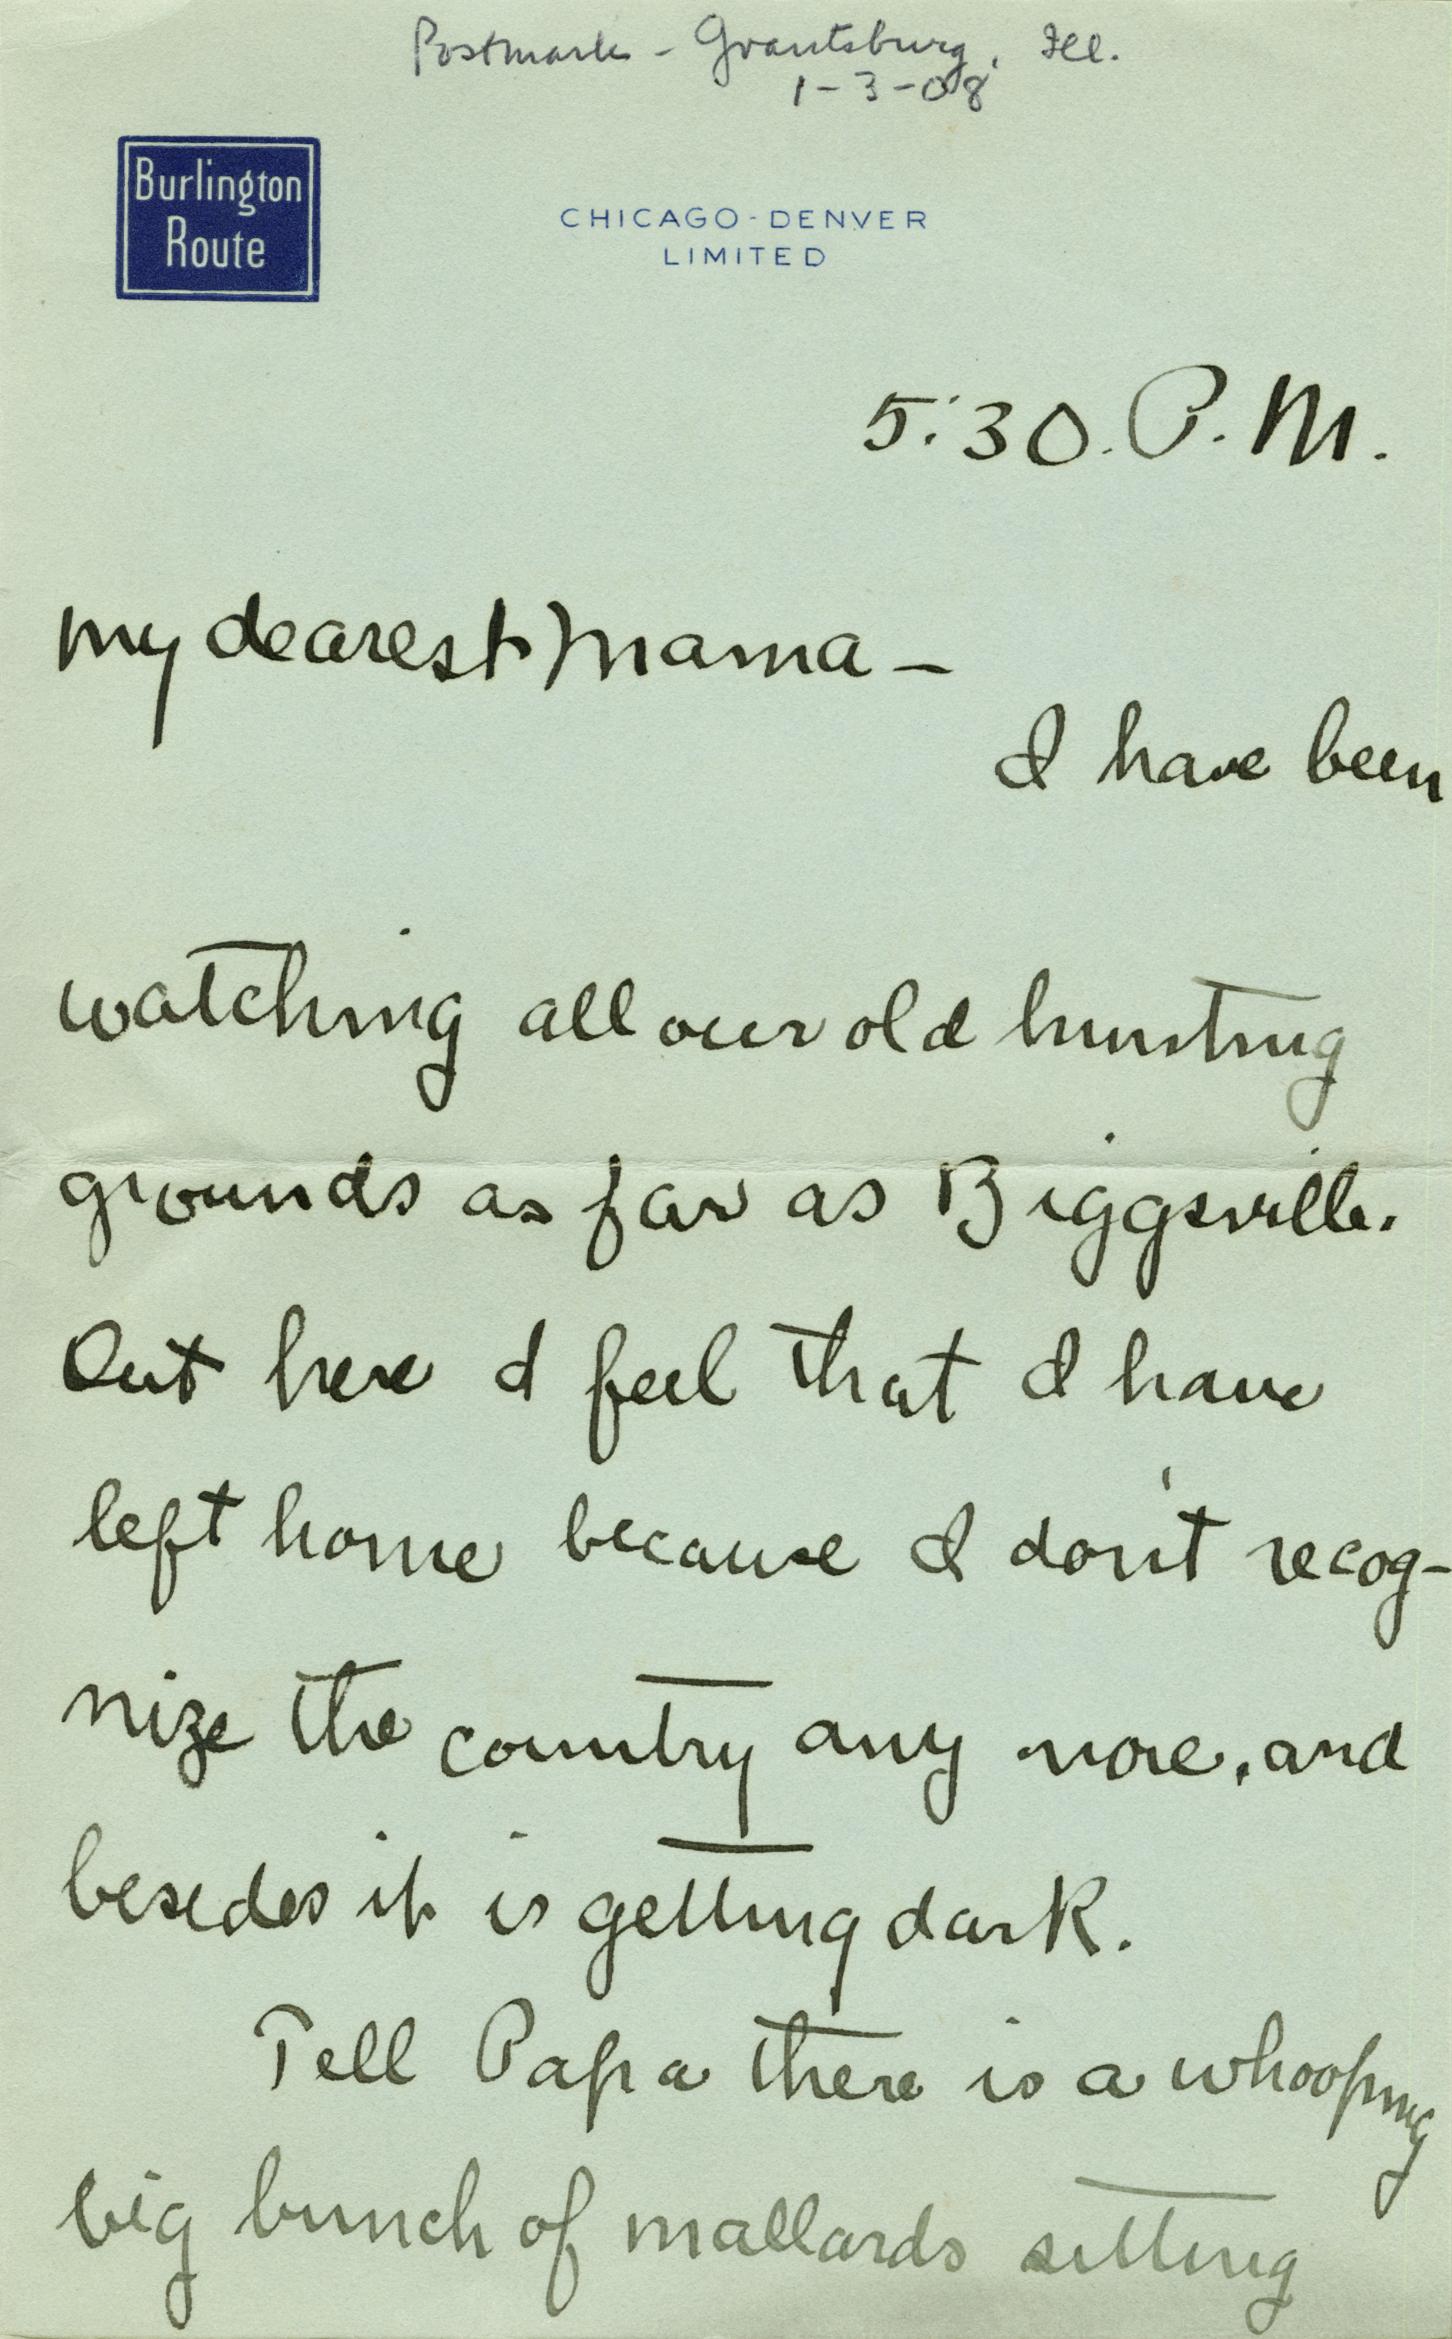 Postmark - Grantsburg, Ill.
1-3-08
Burlington
Route
CHICAGO-DENVER
LIMITED
5:30. P. M.
My dearest Mama —
I have been
watching all our old hunting
grounds as far as Biggsville.
Out here I feel that I have
left home because I don't recog-
nize the country any more, and
besides it is getting dark.
Tell Papa there is a whooping
big bunch of mallards sitting